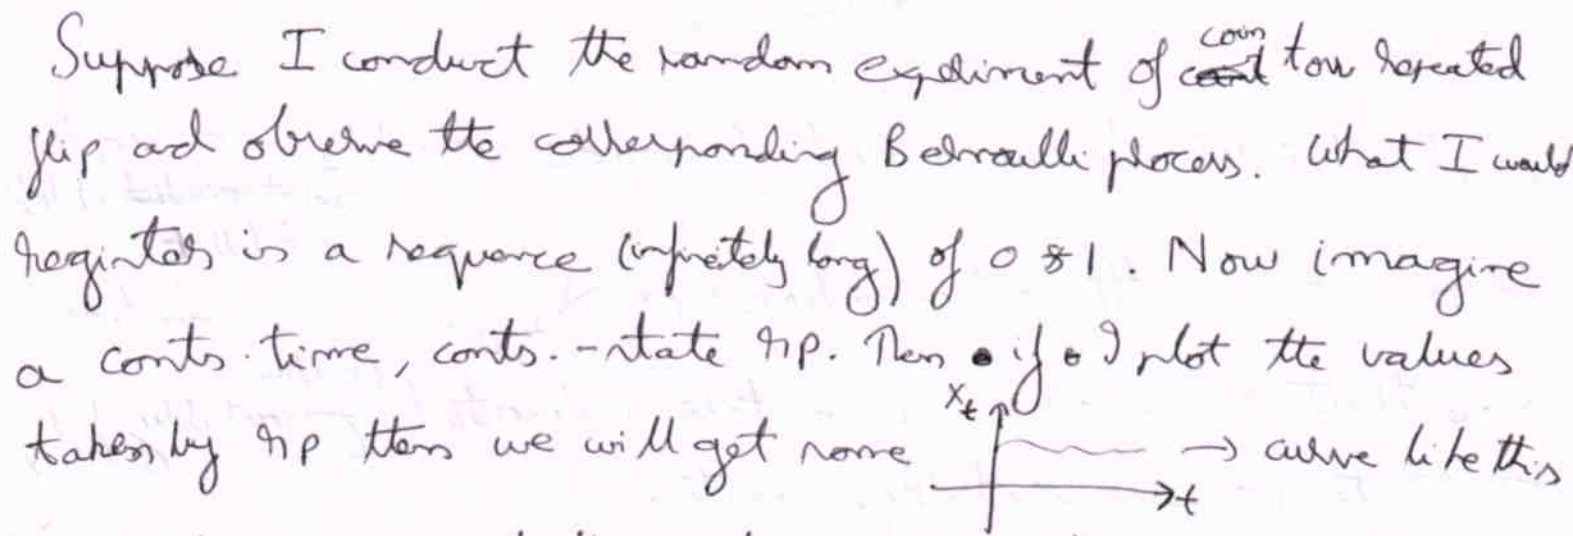 Suppose I conduct the random experiment of coin toss repeated
flip and observe the corresponding Bernoulli process. What I would
register is a sequence (infinitely long) of 0 & 1. Now imagine
a conts. time, conts.-state rp. Then if I plot the values
taken by rp then we will get some X_t t → curve like this